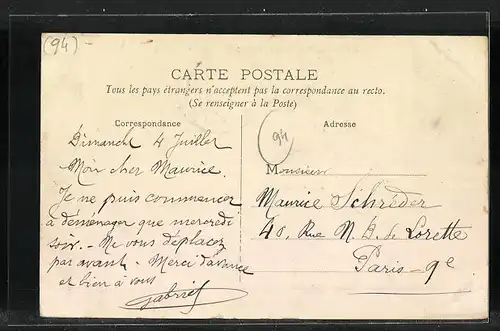 (94)
CARTE POSTALE
Tous les pays étrangers n'acceptent pas la correspondance au recto.
(Se renseigner à la Poste)
Correspondance
Adresse
94
Dimanche 4 Juillet
Mon cher Maurice.
Je ne puis commencer
à déménager que mercredi
soir. - Ne vous déplacez
pas avant. - Merci d'avance
et bien à vous
Gabriel
Monsieur
Maurice Schréder
40, Rue N. D. de Lorette
Paris - 9e